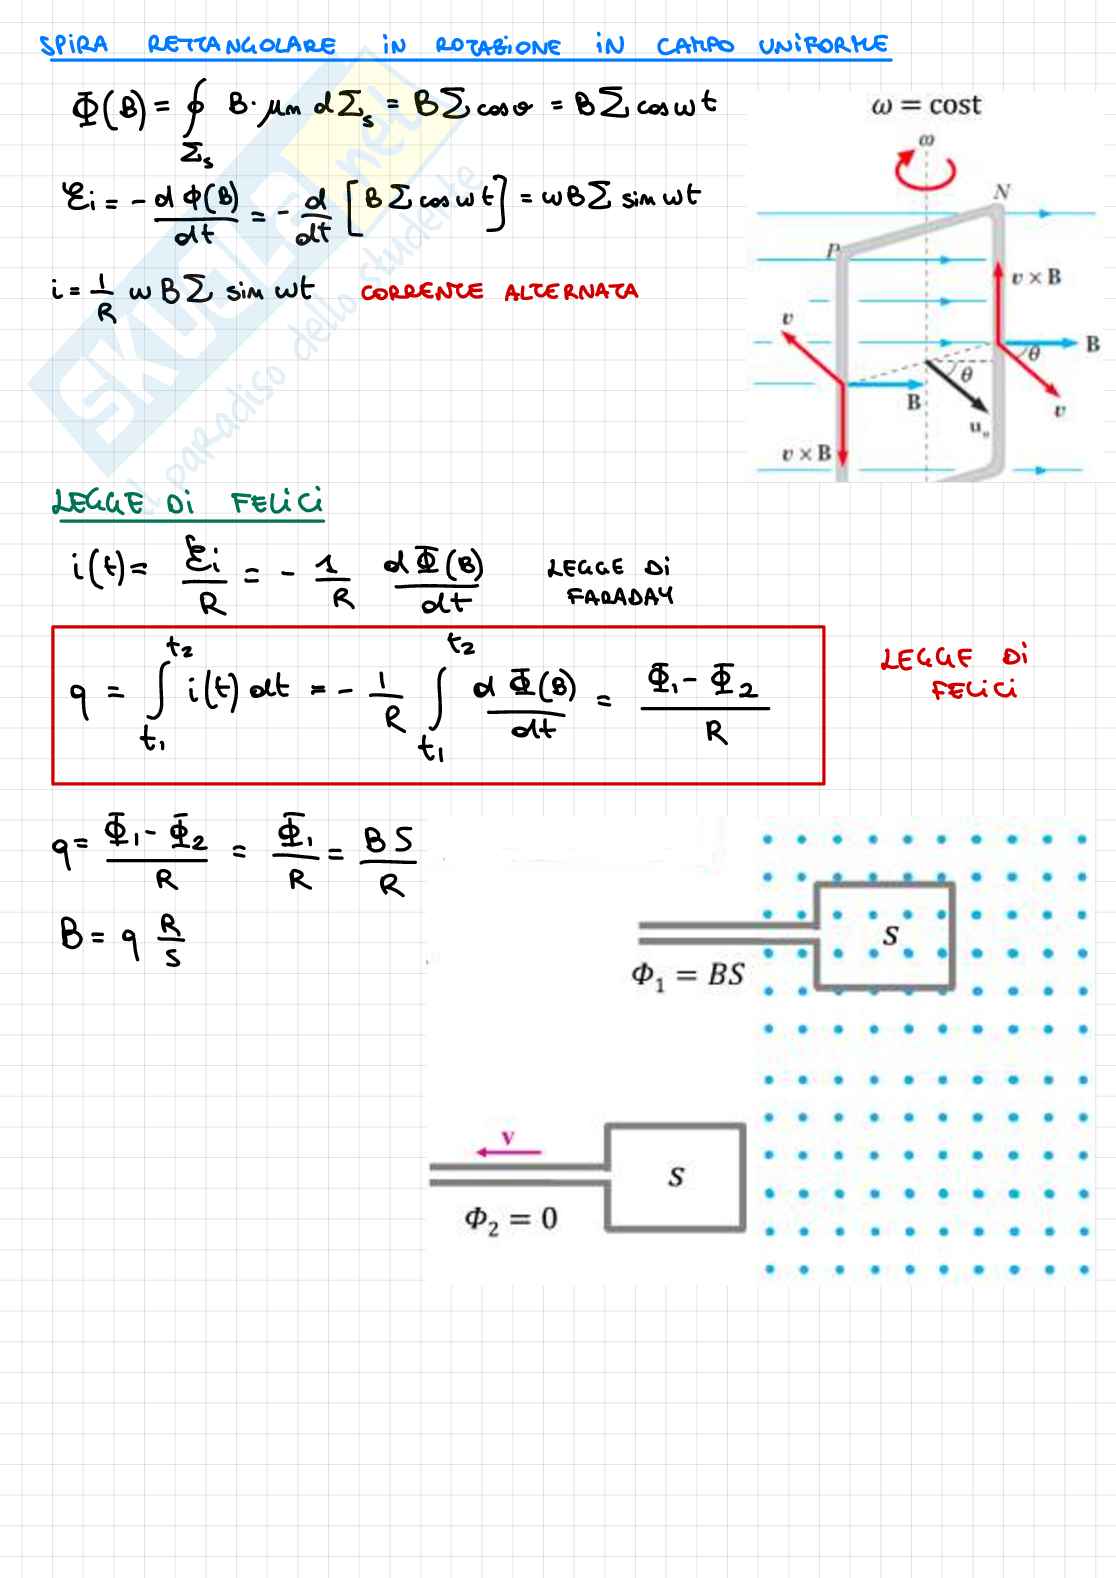 SPIRA RETTANGOLARE IN ROTAZIONE IN CAMPO UNIFORME
Φ(B) = ∮_Σs B · μm dΣs = BΣ cosθ = BΣ cos ωt
ω = cost
ω
Ɛi = - dΦ(B)/dt = - d/dt [BΣ cos ωt] = ωBΣ sin ωt
N
P
i = 1/R ωBΣ sin ωt CORRENTE ALTERNATA
v × B
v
B
θ
θ
B
v
uₙ
v × B
SKUOLA.net
il paradiso dello studente
LEGGE DI FELICI
i(t) = Ɛi/R = - 1/R dΦ(B)/dt LEGGE DI
FARADAY
q = ∫_t₁^t₂ i(t) dt = - 1/R ∫_t₁^t₂ dΦ(B)/dt = Φ₁ - Φ₂/R
LEGGE DI
FELICI
q = Φ₁ - Φ₂/R = Φ₁/R = BS/R
B = q R/S
S
Φ₁ = BS
v
S
Φ₂ = 0